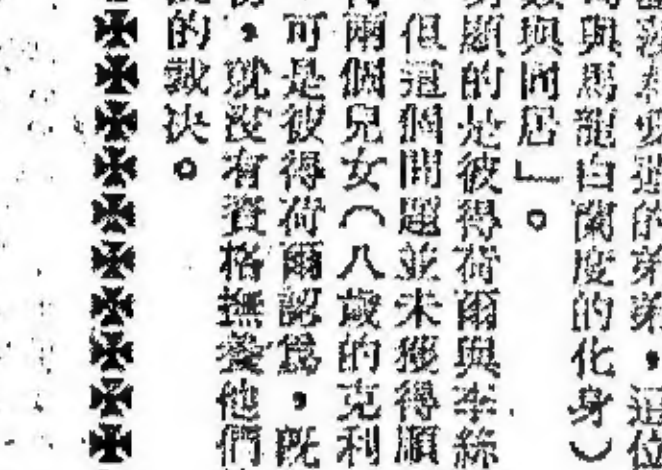 的弟弟，這位
與馬龍白蘭度的化身）
與同居」。
顯的是彼得荷爾與李絲
但這個問題並未獲得順利
兩個兒女（八歲的克利
可是彼得荷爾認爲，既
，就沒有資格撫養他們
的裁決。